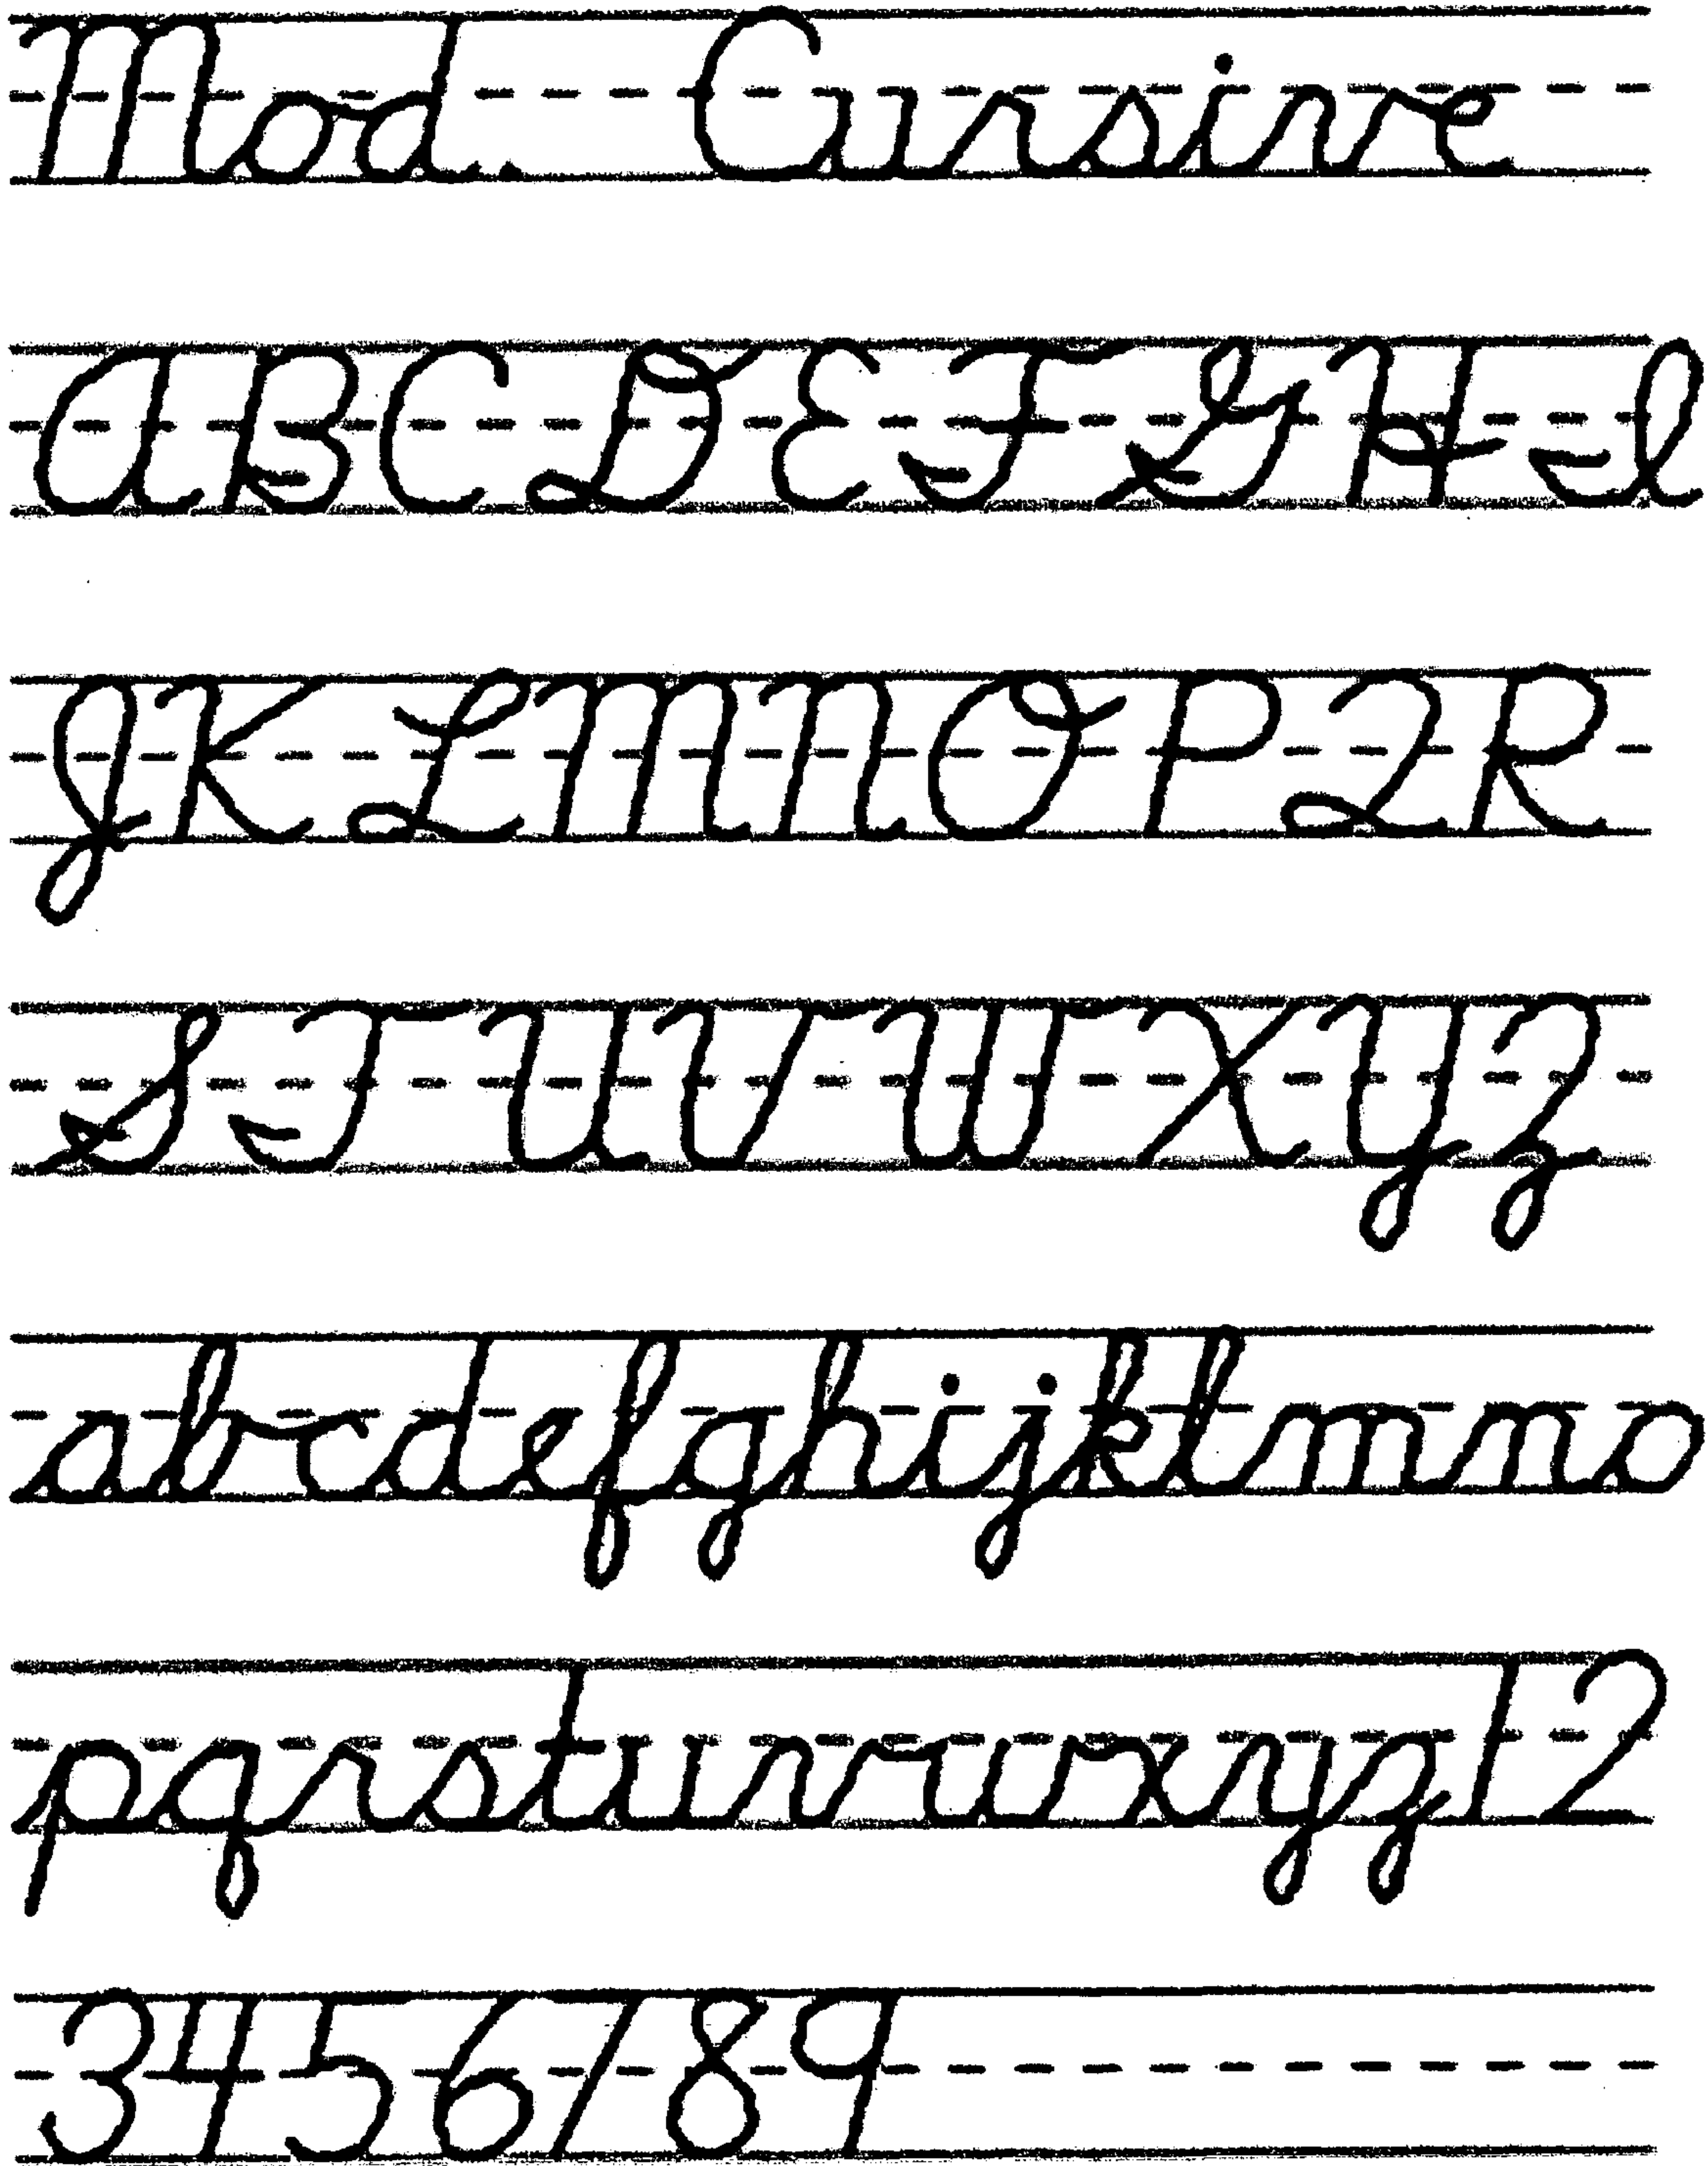 Mod. Cursive
A B C D E F G H I
J K L M N O P Q R
S T U V W X Y Z
abcdefghijklmno
pqrstuvwxyz 1 2
3 4 5 6 7 8 9